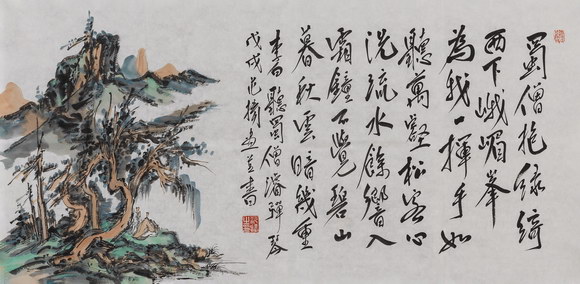 蜀僧抱綠綺
西下峨嵋峯
為我一揮手如
聽萬壑松客心
洗流水餘響入
霜鐘不覺碧山
暮秋雲暗幾重
李白聽蜀僧濬彈琴
戊戌畫並書